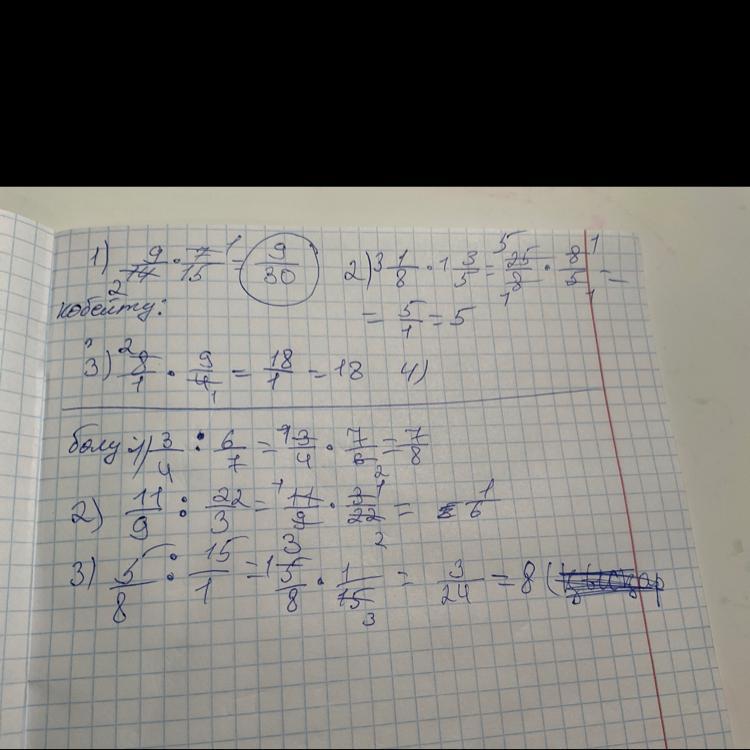 1) 9/14 · 7/15 = 9/30 2) 3 1/8 · 1 3/5 = 25/8 · 8/5 =
көбейту:
= 5/1 = 5
3) 8/1 · 9/4 = 18/1 = 18 4)
бөлу: 1) 3/4 : 6/7 = 3/4 · 7/6 = 7/8
2) 11/9 : 22/3 = 11/9 · 3/22 = 1/6
3) 5/8 : 15/1 = 5/8 · 1/15 = 3/24 = 8 (